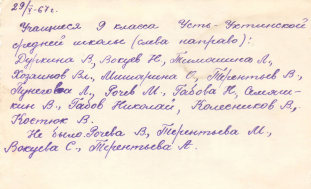 29/V-67г.
Учащиеся 9 класса Усть-Ухтинской
средней школы (слева направо):
Дуркина В, Вокуев Н, Тимошина Л,
Хозяинов Вл., Мишарина О, Терентьев В,
Пунегова Л., Рочев М., Габова Н, Семяш-
кин В., Габов Николай, Колесников В,
Костюк В.
Не было: Рочева В, Терентьева М.,
Вокуева С., Терентьева А.